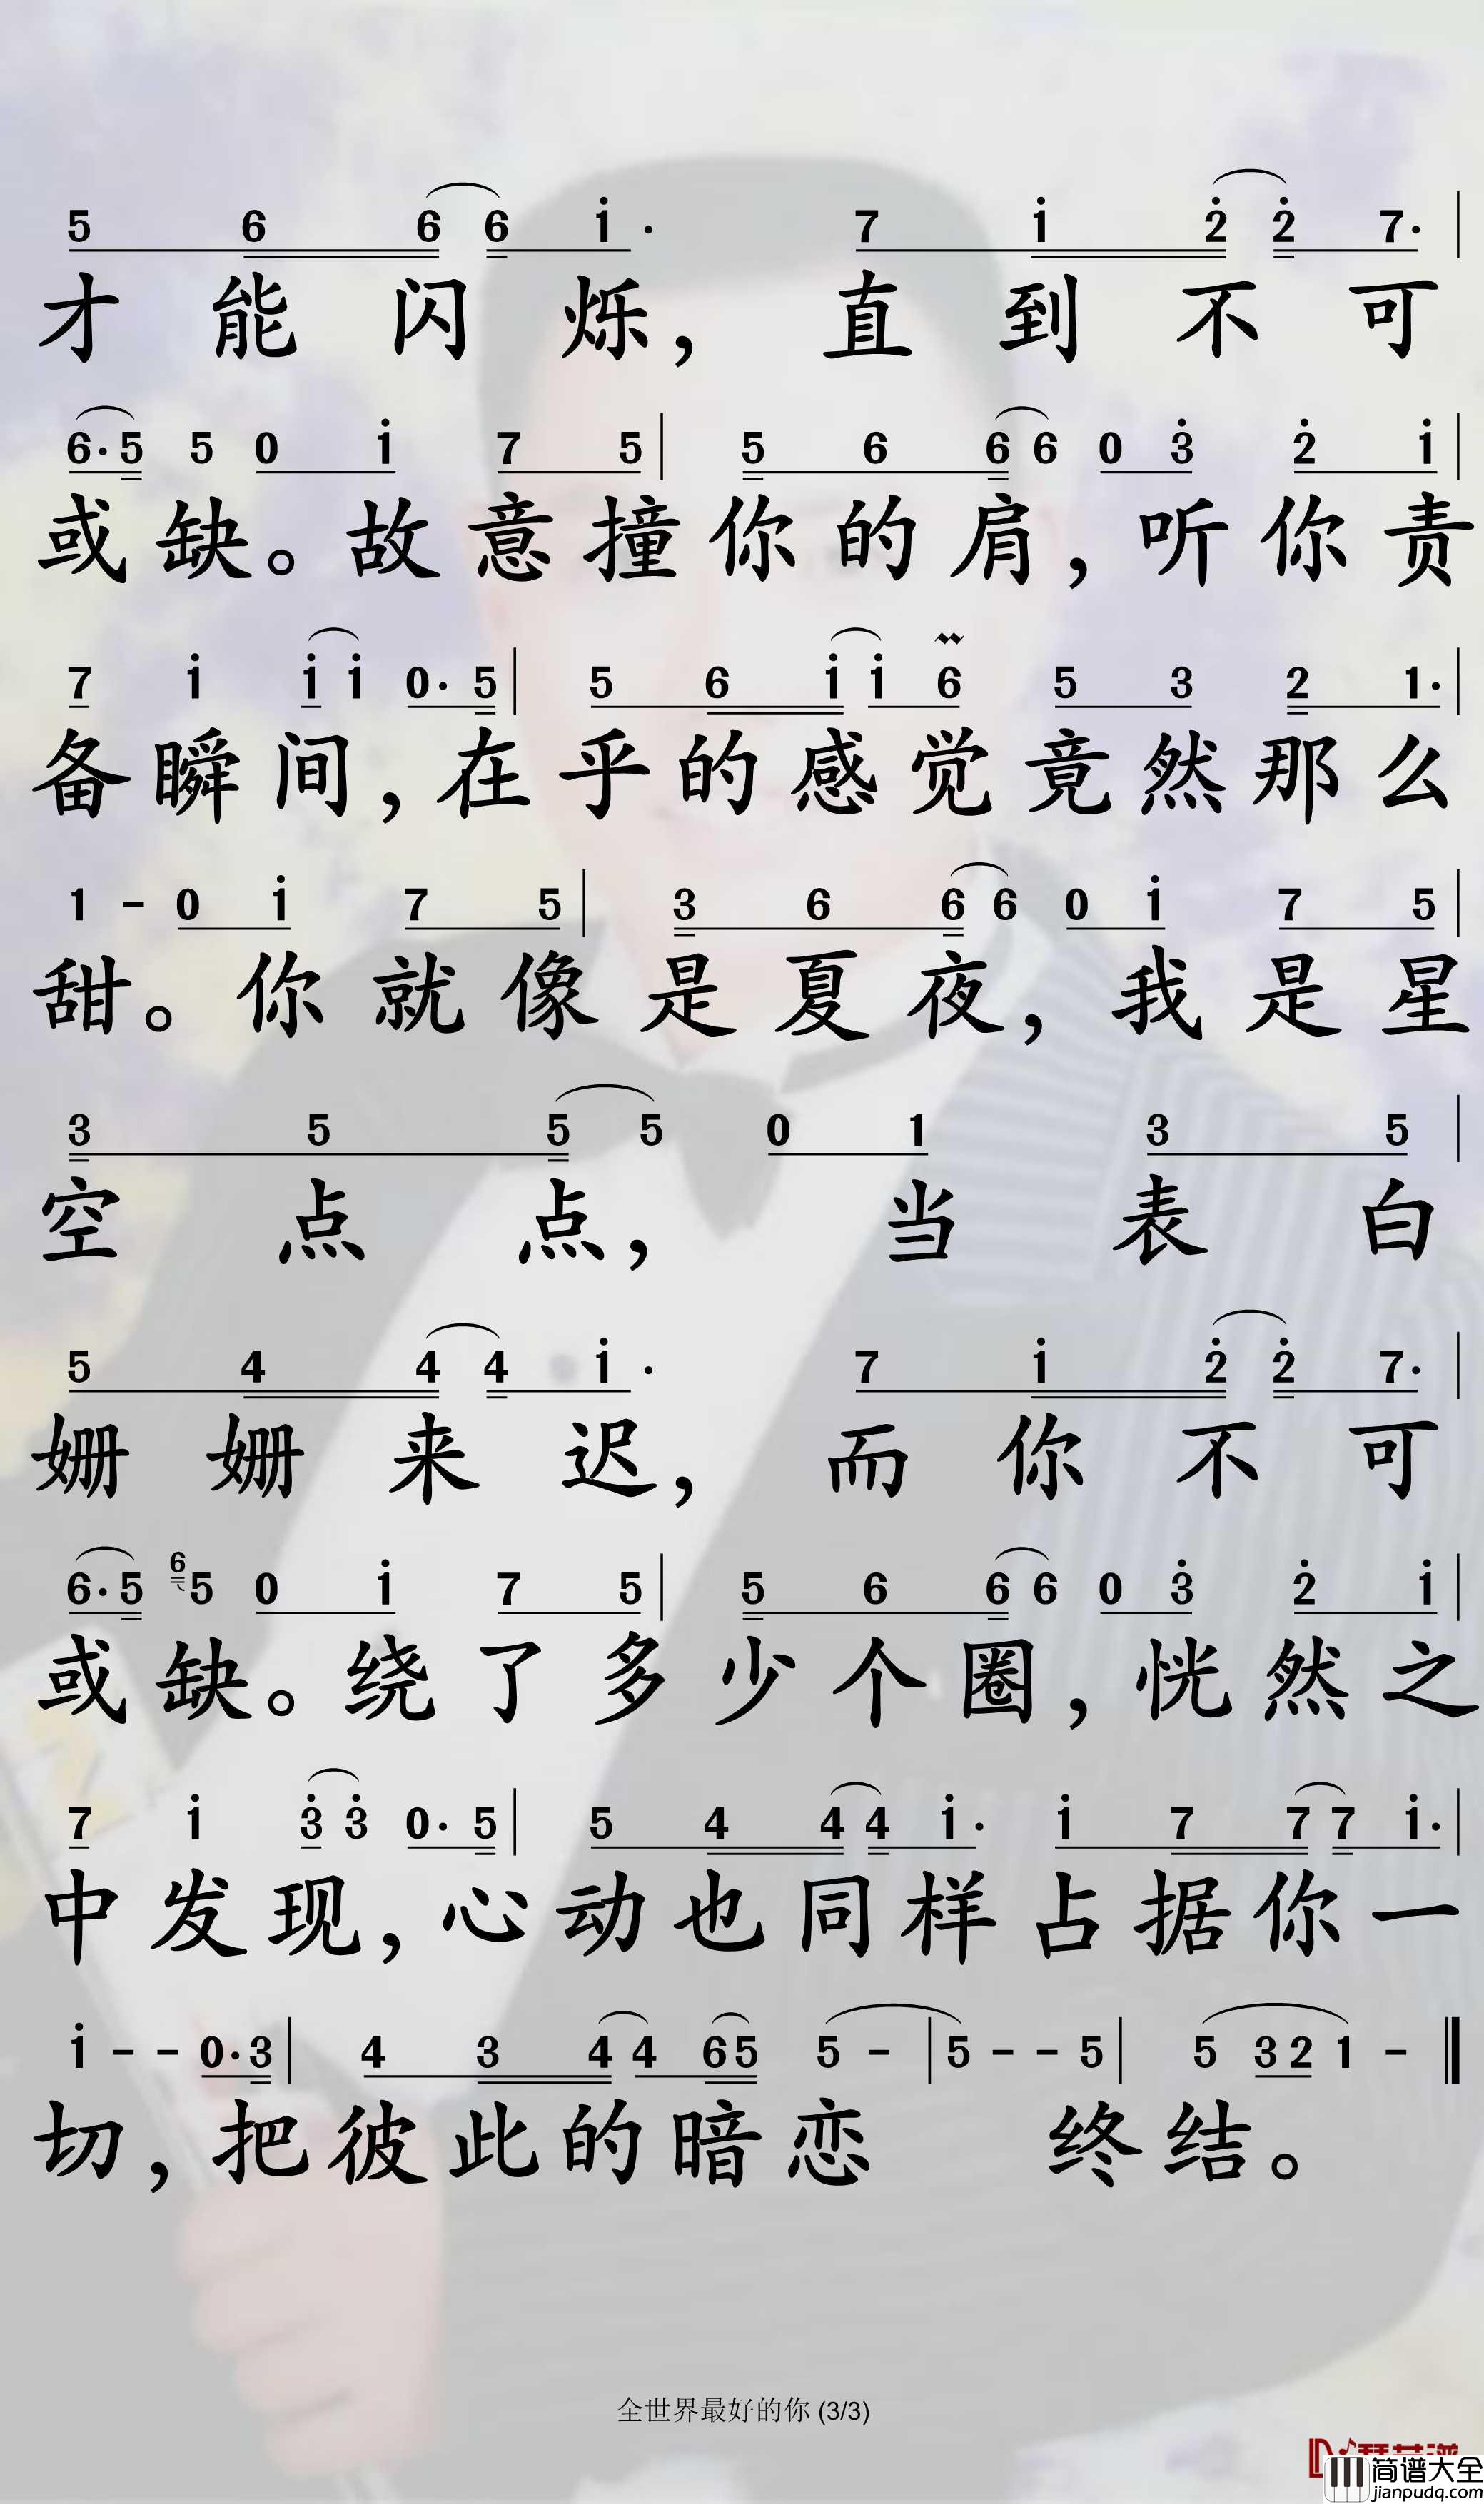 5 6 6 6 i· 7 i 2̇ 2̇ 7·
才能闪烁，直到不可
6· 5 5 0 i 7 5 5 6 6 6 0 3̇ 2̇ i
或缺。故意撞你的肩，听你责
7 i i i 0· 5 5 6 i i 6 5 3 2 1·
备瞬间，在乎的感觉竟然那么
1 - 0 i 7 5 3 6 6 6 0 i 7 5
甜。你就像是夏夜，我是星
3 5 5 5 0 1 3 5
空点点，当表白
5 4 4 4 i· 7 i 2̇ 2̇ 7·
姗姗来迟，而你不可
6· 5 6 5 0 i 7 5 5 6 6 6 0 3̇ 2̇ i
或缺。绕了多少个圈，恍然之
7 i 3̇ 3̇ 0· 5 5 4 4 4 i· i 7 7 7 i·
中发现，心动也同样占据你一
i - - 0· 3 4 3 4 4 6 5 5 - 5 - - 5 5 3 2 1 -
切，把彼此的暗恋 终结。
全世界最好的你 (3/3)
简谱大全
jianpudq.com